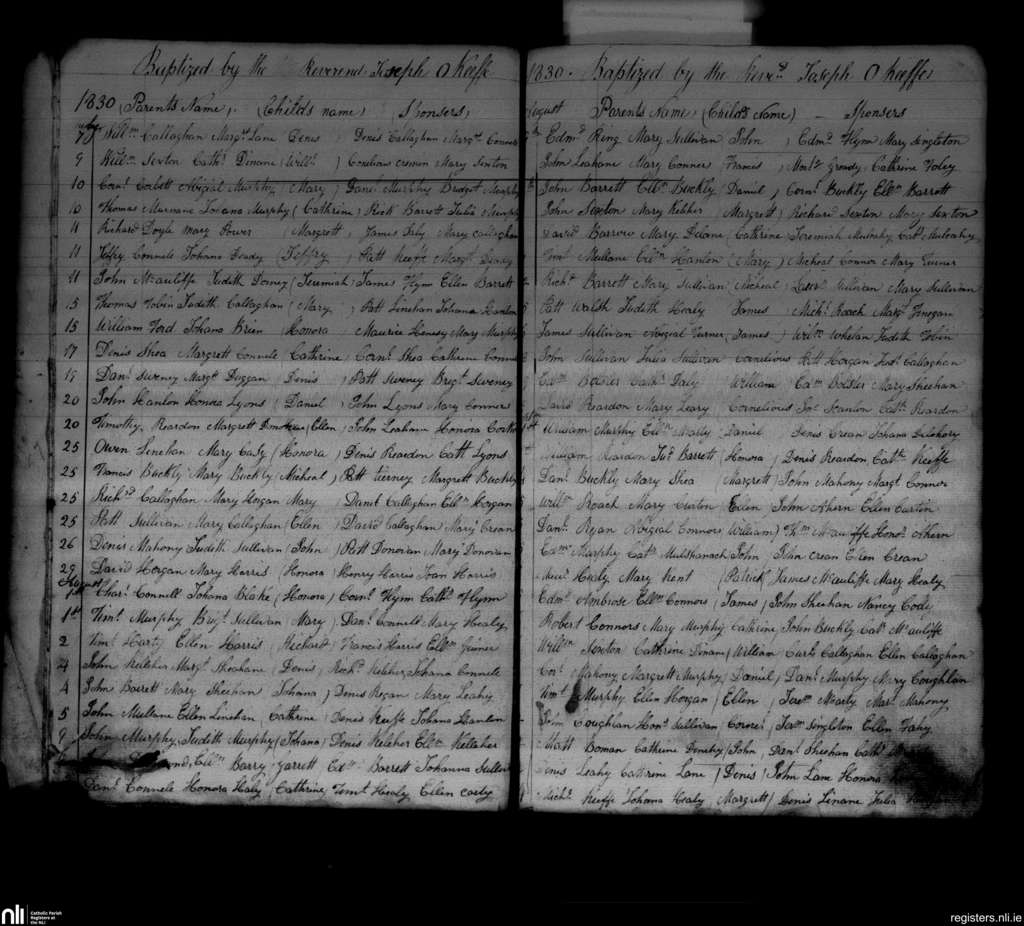 Baptized by the Reverend Joseph O Keeffe
1830 Parents Name, (Childs name) Sponsers,
7 Callaghan Margt Lane Denis Denis Callaghan Margt Conner
9 Willm Sexton Cathe Dinane (Willm) Conelious Mary Sexton
10 Cornl Corbett Abigial Murphy (Mary) Danl Murphy Bridget Murphy
10 Thomas Murnane Johana Murphy (Cathrine) Rick Barrett Julia Murphy
11 Richard Doyle Mary Power Margrett, James Mary Callaghan
11 Jeffry Connele Johana Deady (Jeffry) Patt Keeffe Margt Deady
11 John McAuliffe Judith (Jeremiah) James Flynn Ellen Barrett
15 Thomas Tobin Judith Callaghan (Mary) Patt Linehan Johanna Hanlon
15 William Ford Johana Brien (Honora) Maurice Mary Murphy
17 Denis Shea Margrett Connele Cathrine) Cornl Shea Cathrine
19 Danl Sweney Margt Duggan (Denis) Patt Sweney Bregt Sweney
20 John Hanlon Honora Lyons (Daniel) John Lyons Mary Conners
20 Timothy Reardon Margrett (Ellen) John Leahane Honora
25 Owen Linehan Mary Casy (Honora) Denis Reardon Catt Lyons
25 Francis Buckly Mary Buckly (Micheal) Patt Tierney Margrett Buckly
25 Richd Callaghan Mary Horgan Mary Danl Callaghan Ellen Horgan
25 Patt Sullivan Mary Callaghan (Ellen) David Callaghan Mary Crean
26 Denis Mahony Judith Sullivan (John) Patt Donovan Mary Donovan
29 David Horgan Mary Harris (Honora) Henry Harris Joan Harris
August
1st Charl Connell Johana Blake (Honora) Cornl Flynn Cathe Flynn
1st Timt Murphy Brigt Sullivan (Mary) Danl Connell Mary Healy
2 Timt Harty Ellen Harris (Richard) Francis Harris Ellen
4 John Keleher Margt Sheehane (Denis) Richd Keleher, Johana Connele
4 John Barrett Mary Sheehan Johana) Denis Regan Mary Leahy
5 John Mullane Ellen Linehan (Cathrine) Denis Keeffe Johana Hanlon
9 John Murphy Judith Murphy (Johana) Denis Keleher Ellen Kellaher
Ellen Barry Garrett Edm Barrett Johanna
Danl Connele Honora Healy (Cathrine) Timt Healy Ellen Casey
1830. Baptized by the Revd Joseph O Keeffe
August Parents Name, (Childs Name) Sponsers
Edmd Ring Mary Sullivan John Edmd Flynn Mary Singleton
John Leahane Mary Conner (Francis) Grady Cathrine Foley
John Barrett Ellen Buckly (Daniel) Cornl Buckly Ellen Barrett
John Sexton Mary Keleher (Margrett) Richard Sexton Mary Sexton
David Barrow Mary (Cathrine) Jeremiah Mulcahy Catt Mulcahy
Timt Mullane Ellen Hanlon (Mary) Micheal Connor Mary Turner
Richd Barrett Mary Sullivan (Micheal) Sullivan Mary Sullivan
Patt Walsh Judith Healy James Michl Roach Margt Finegan
James Sullivan Abigial Turner (James) Willm Whelan Judith Tobin
John Sullivan Julia Sullivan Cornelious Patt Horgan Callaghan
Edm Bolster Cathe Daly William Edm Bolster Mary Sheehan
David Reardon Mary Leary (Cornelious) Jno Scanlon Catt Reardon
William Murphy Ellen Daniel Denis Crean Johana
William Reardon Barrett (Honora) Denis Reardon Catt Keeffe
Danl Buckly Mary Shea (Margrett) John Mahony Margt Connor
Willm Roach Mary Curtin (Ellen John Ahern Ellen Curtin
Danl Regan Abigial Connors William) McAuliffe Honor Ahern
Edmd Murphy Catt John John Crean Ellen Crean
Healy Mary Kent (Patrick) James McAuliffe Mary Healy
Edmd Ambrose Ellen Connors (James) John Sheehan Nancy Cody
Robert Connors Mary Murphy Cathrine John Buckly Catt McAuliffe
Willm Sexton Cathrine Dinane (William) Callaghan Ellen Callaghan
Mahony Margrett Murphy (Daniel) Danl Murphy Mary Coughlan
Timt Murphy Ellen Horgan (Ellen) Mahony
Coughlan Honr Sullivan Singleton Ellen Fahy
Matt Boman Cathrine (John) Danl Sheehan Catt
Denis Leahy Cathrine Lane (Denis) John Lane Honora
Michl Keeffe Johana Healy Margrett) Denis Linane Julia
nli Catholic Parish
Registers at
the NLI
registers.nli.ie